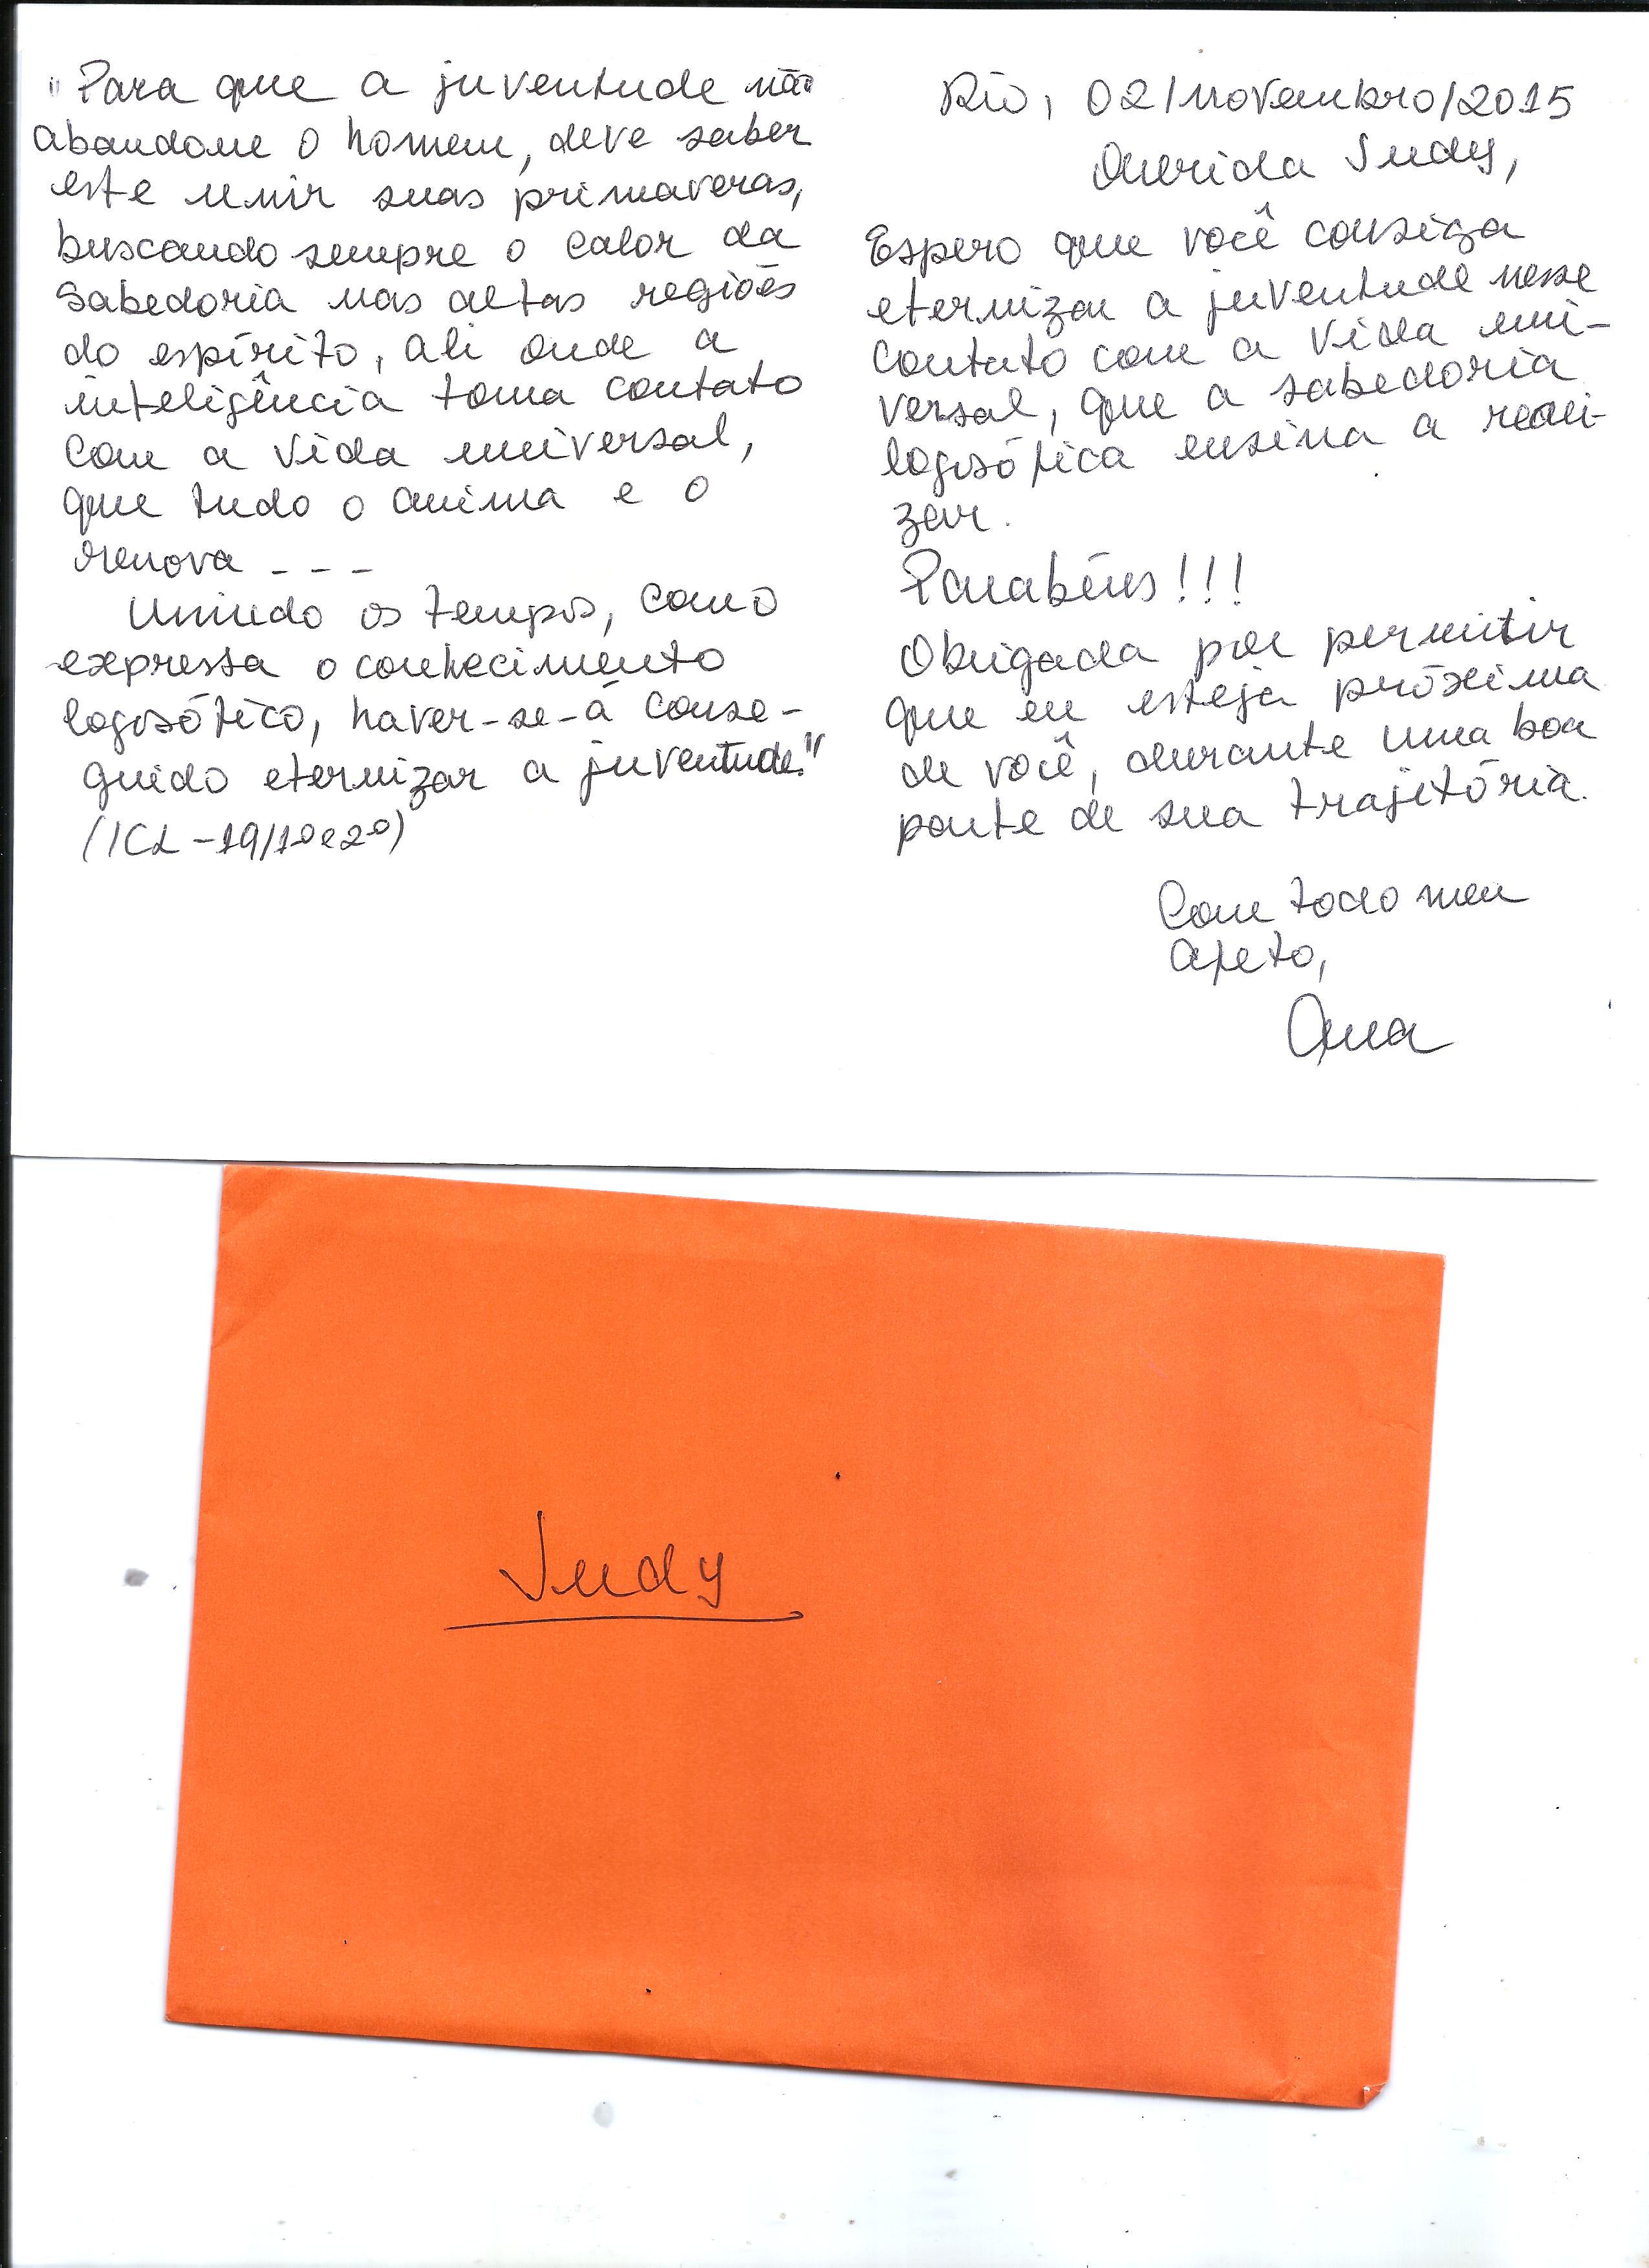 "Para que a juventude não
abandone o homem, deve saber
este unir suas primaveras,
buscando sempre o calor da
sabedoria nas altas regiões
do espírito, ali onde a
inteligência toma contato
com a vida universal,
que tudo o anima e o
renova ---
Unindo os tempos, como
expressa o conhecimento
logosófico, haver-se-á conse-
guido eternizar a juventude."
(ICL - 19/1º e 2º)
Rio, 02/novembro/2015
Querida Judy,
Espero que você consiga
eternizar a juventude nesse
contato com a vida uni-
versal, que a sabedoria
logosófica ensina a reali-
zar.
Parabéns!!!
Obrigada por permitir
que eu esteja próxima
de você, durante uma boa
parte de sua trajetória.
Com todo meu
afeto,
Ana
Judy